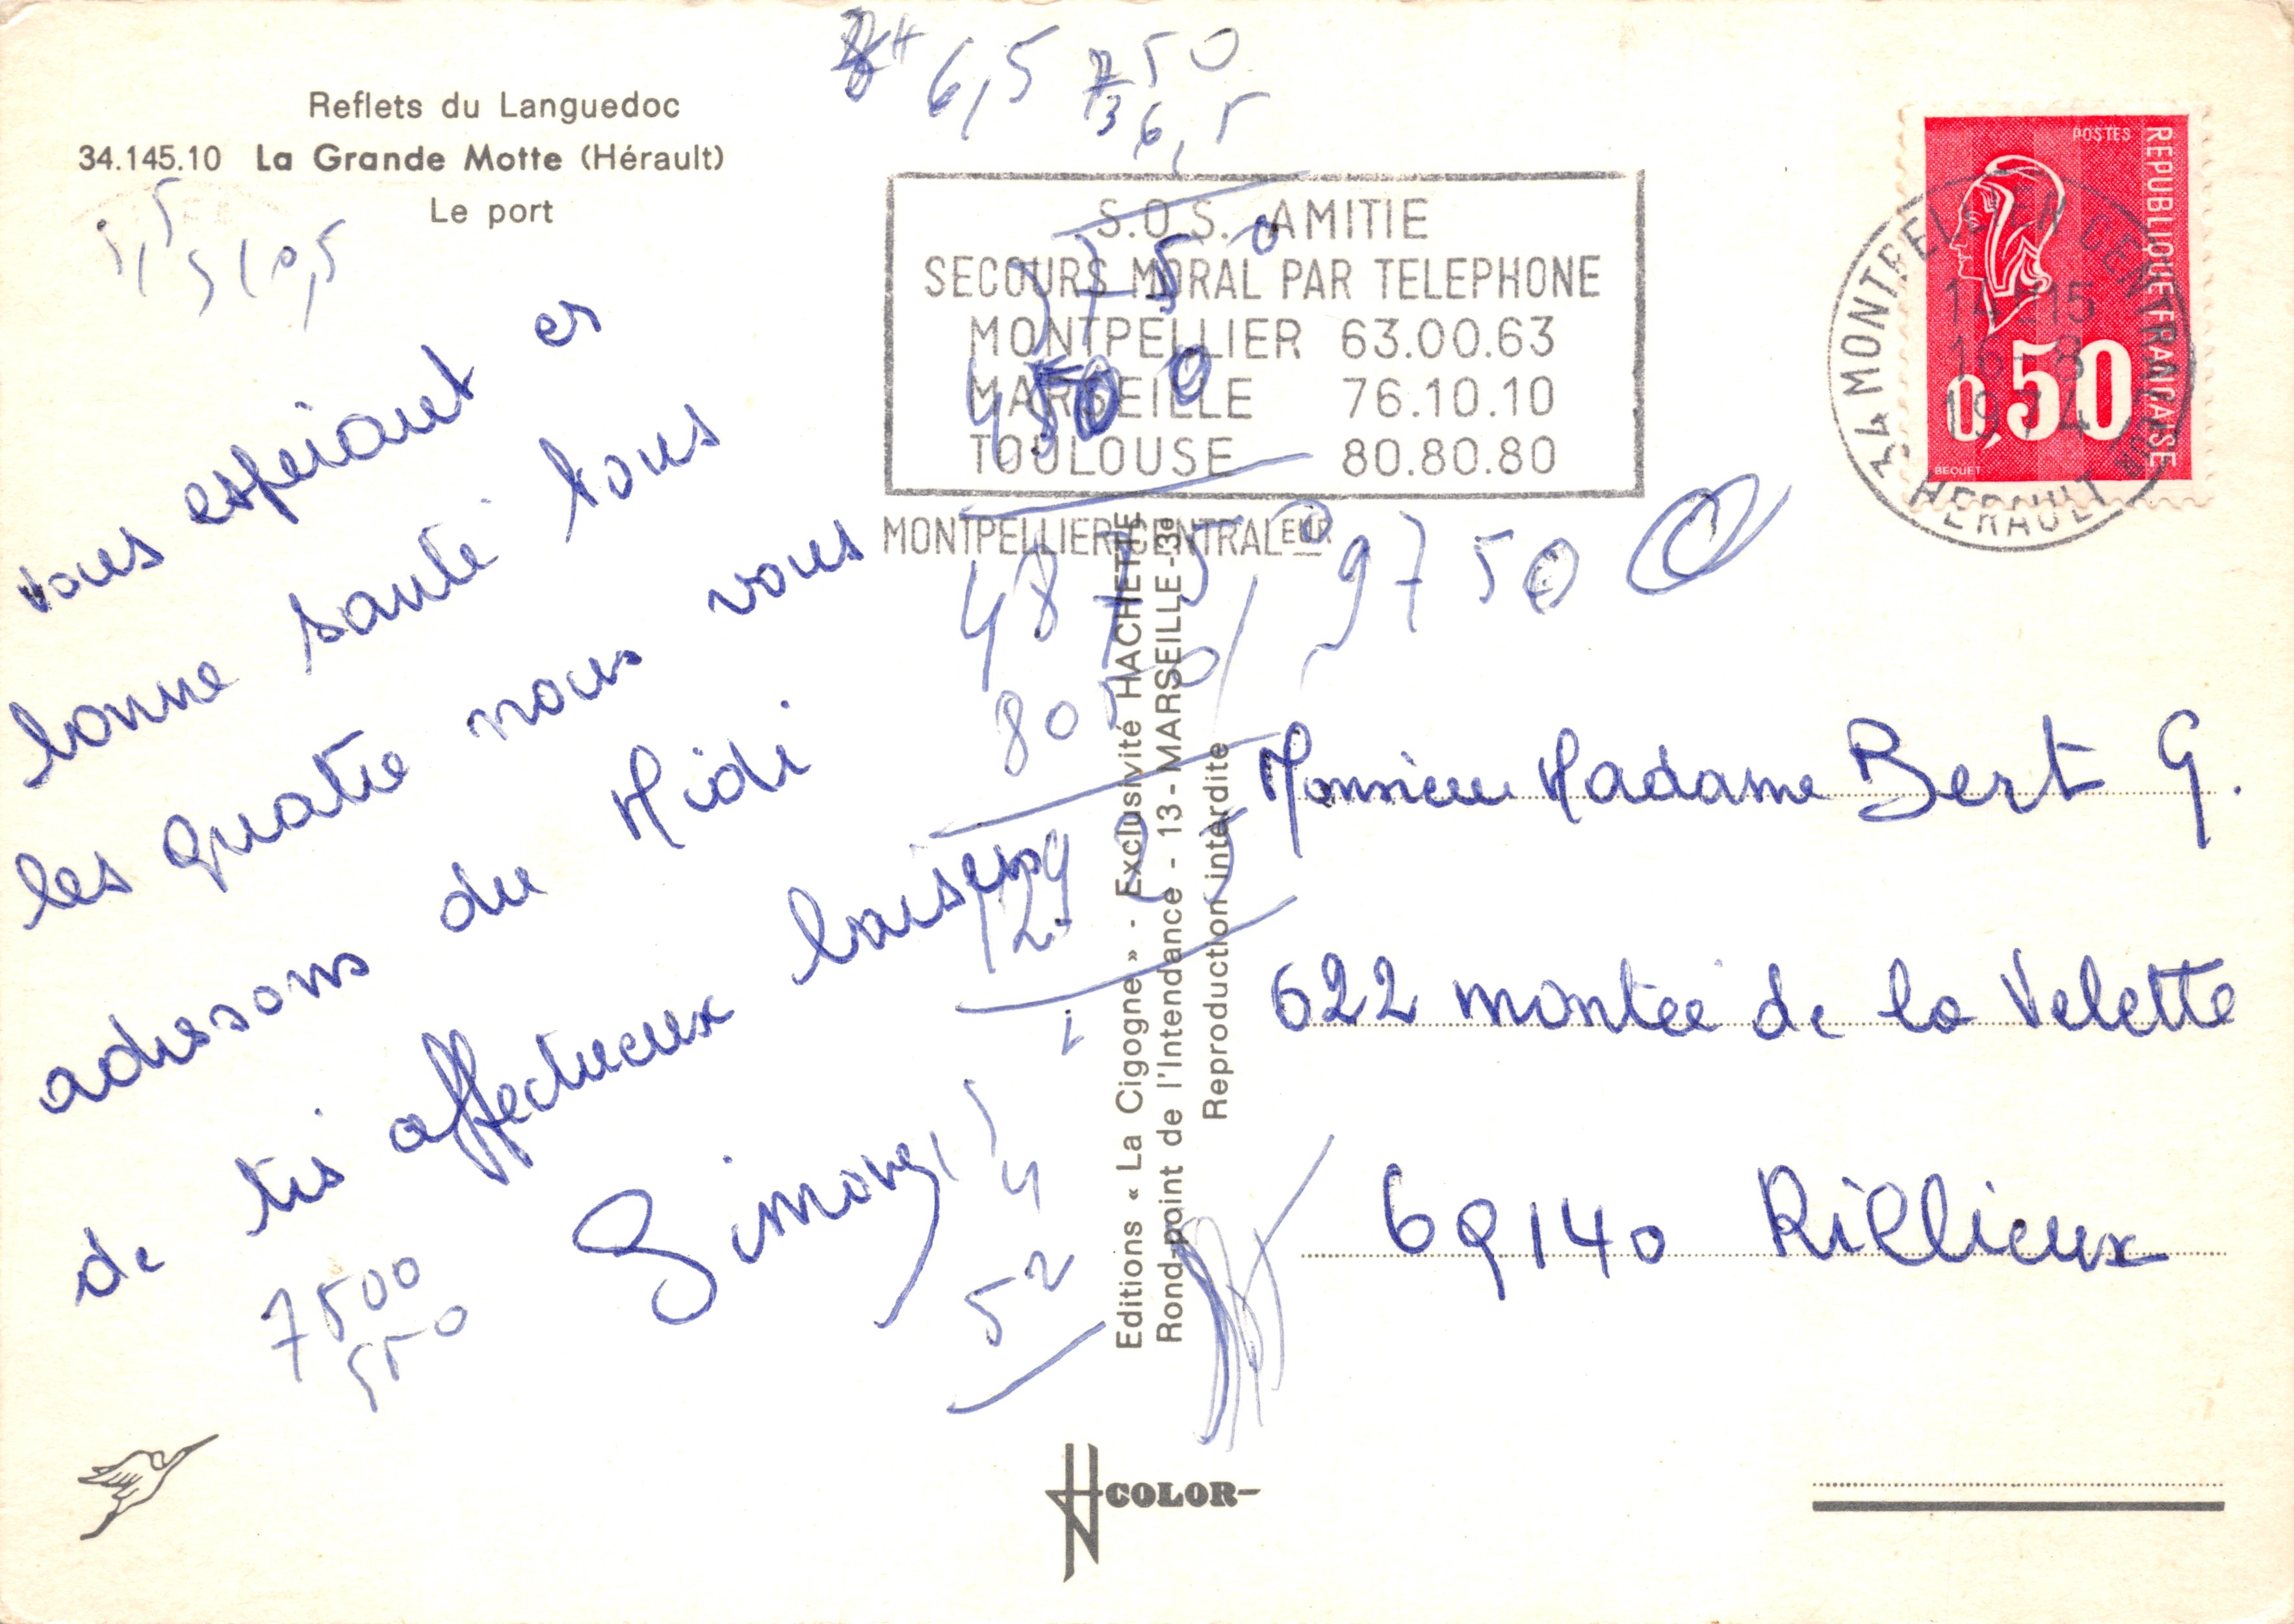 Reflets du Languedoc
34.145.10 La Grande Motte (Hérault)
Le port
6,5
750
6,5
S.O.S. AMITIE
SECOURS MORAL PAR TELEPHONE
MONTPELLIER 63.00.63
MARSEILLE 76.10.10
TOULOUSE 80.80.80
MONTPELLIER CENTRAL
POSTES
REPUBLIQUE FRANCAISE
0,50
BEQUET
34 MONTPELLIER CENTRAL
14-15
16-8
1974
HERAULT
3750
4500
48750
9750
vous espérant en
bonne santé tous
les quatre nous vous
adressons du Midi
de très affectueux baisers
Simone
7500
550
52
Editions « La Cigogne » - Exclusivité HACHETTE
Rond-point de l'Intendance - 13 - MARSEILLE-3e
Reproduction interdite
Monsieur Madame Bert G.
622 montée de la Velette
69140 Rillieux
COLOR